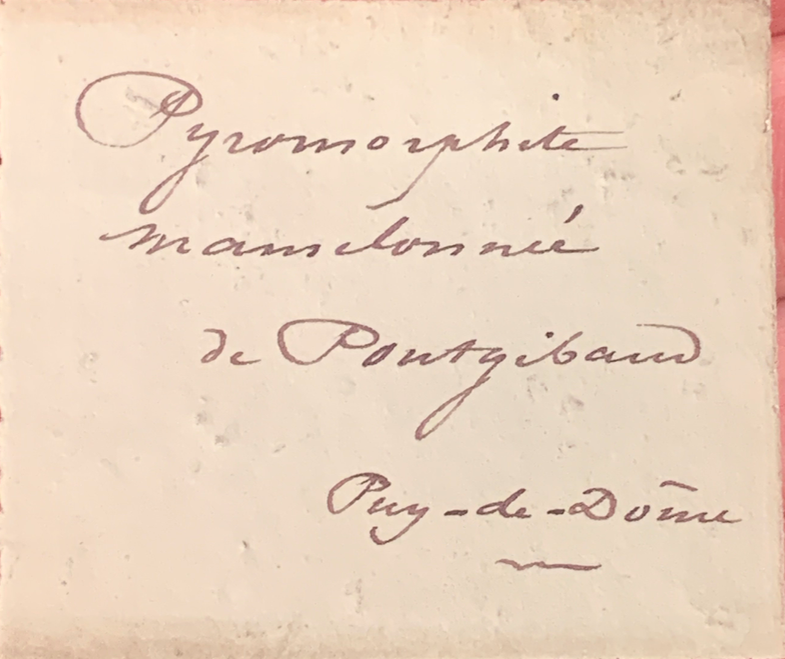 Pyromorphite
mamelonnée
de Pontgibaud
Puy-de-Dôme